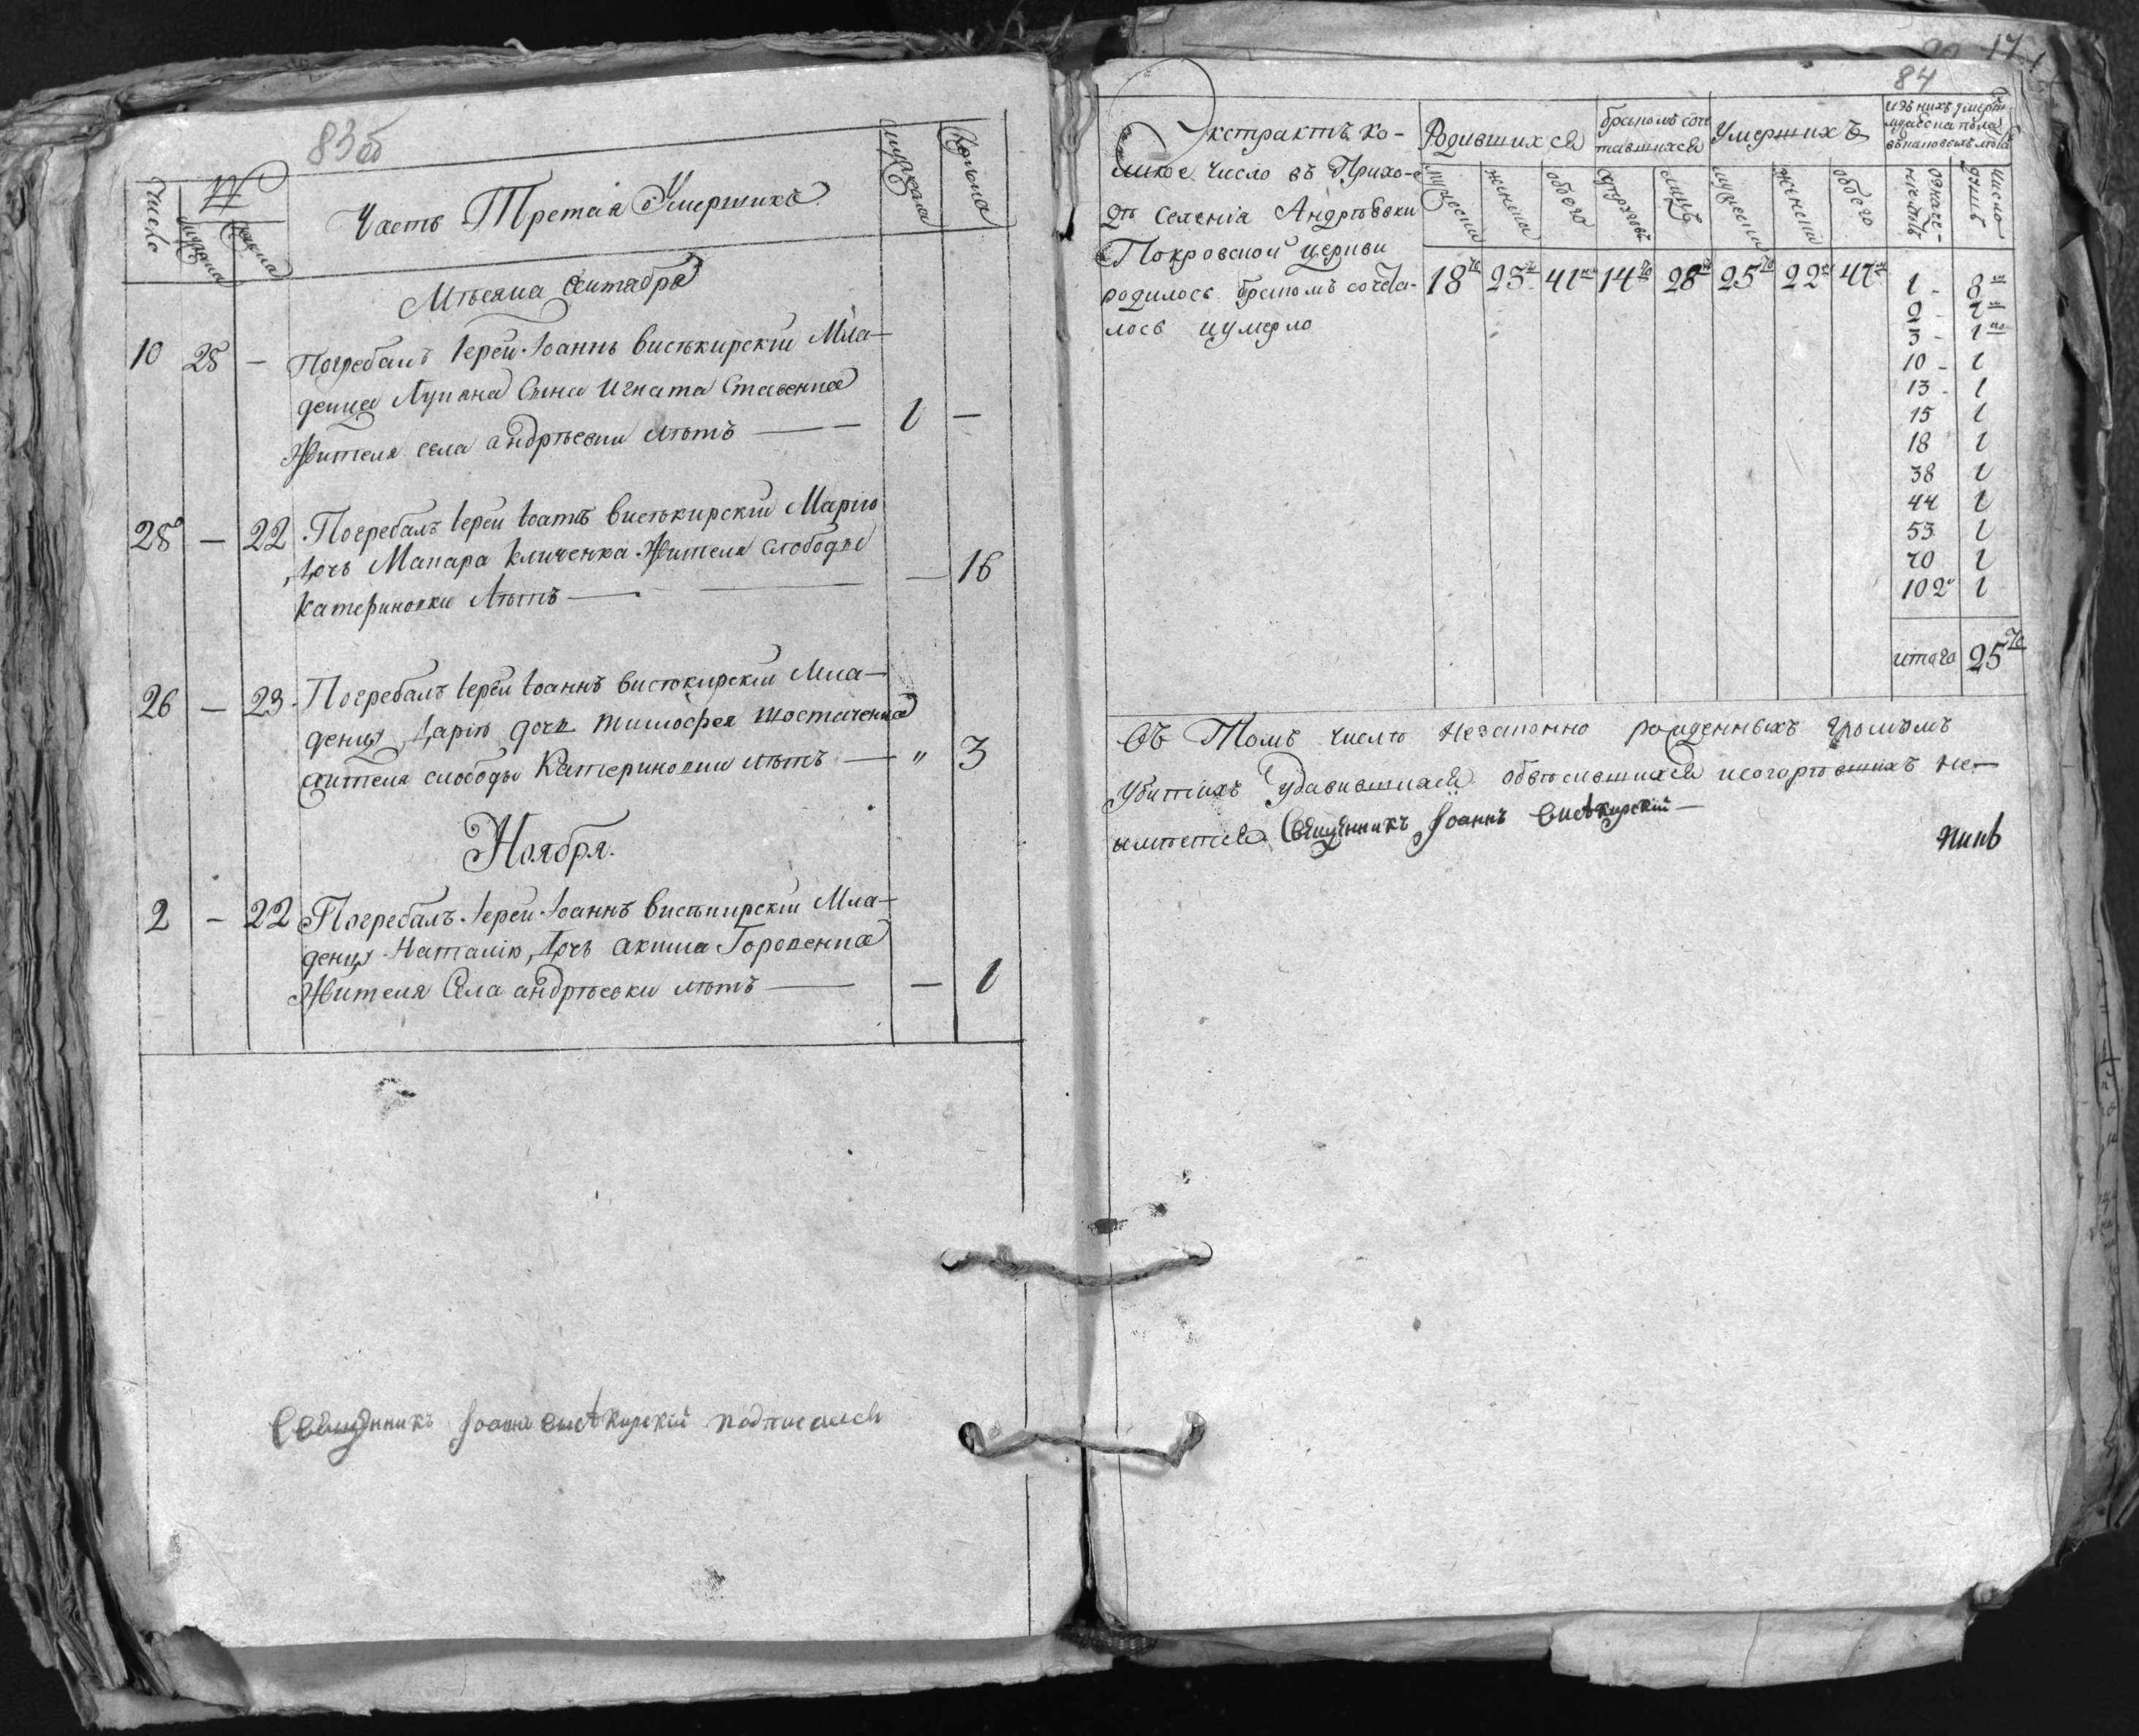 83об
Число
№
мужска
женска
Часть Третая Умершихъ
мужска
женска
Мѣсяца Сентабря
10 25 — Погребалъ Іерей Іоаннъ висѣкирскій Мла-
денца Лупяна Сына Игната Ставенка
Жителя села андрѣевки лѣтъ — 1 —
28 — 22 Погребалъ Іерей Іоаннъ висѣкирскій Марію
дочь Макара Кличенка Жителя слободы
Катериновки Лѣтъ — — 16
26 — 23 Погребалъ Іерей Іоаннъ висѣкирскій Мла-
денцу дарію дочь тимофея шостаченка
жителя слободы Катериновки лѣтъ — „ 3
Ноября.
2 — 22 Погребалъ Іерей Іоаннъ висѣкирскій Мла-
денцу Наталію, дочь акима Горопенка
Жителя Села андрѣевки лѣтъ — — 1
Священникъ Іоаннъ висѣкирскій подписался
17
84
Экстрактъ ко-
ликое число въ Прихо-
дѣ селенія Андрѣевки
Покровской церкви
родилось бракомъ сочета-
лось и умерло
Родившихся
бракомъ соче
тавшихся
Умершихъ
изъ нихъ умерш
мужеска пола
въ каковыхъ лѣта
мужеска
женска
обоего
супружествъ
лицъ
мужеска
женска
обоего
число
душъ
18 23 41 14 28 25 22 47
1 - 8
2 - 7
3 - 1
10 - 1
13 - 1
15 1
18 1
38 1
44 1
53 1
70 1
102 1
итого 25
Въ Томъ числѣ незаконно рожденныхъ громомъ
убитихъ удавившихся обвѣсившихся и согорѣвшихъ не-
имѣется Священникъ Іоаннъ висѣкирскій —